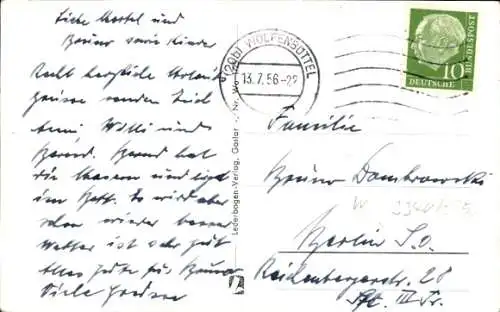 Liebe Martel und
Bruno sowie Kinder
Recht herzliche Urlaubs
grüsse senden Euch
Anni Willi und
Bernd. Bernd hat
die Masern und liegt
im Bett. Es wird aber
schon wieder besser
Wetter ist sehr gut
Alles Gute für Bruno
Viele Grüsse
(20b) WOLFENBÜTTEL
13.7.56-2
DEUTSCHE BUNDESPOST
10
Lederbogen-Verlag, Goslar - Nr.
Familie
Bruno Dombrowski
Berlin S.O.
Reichenbergerstr. 28
III Tr.